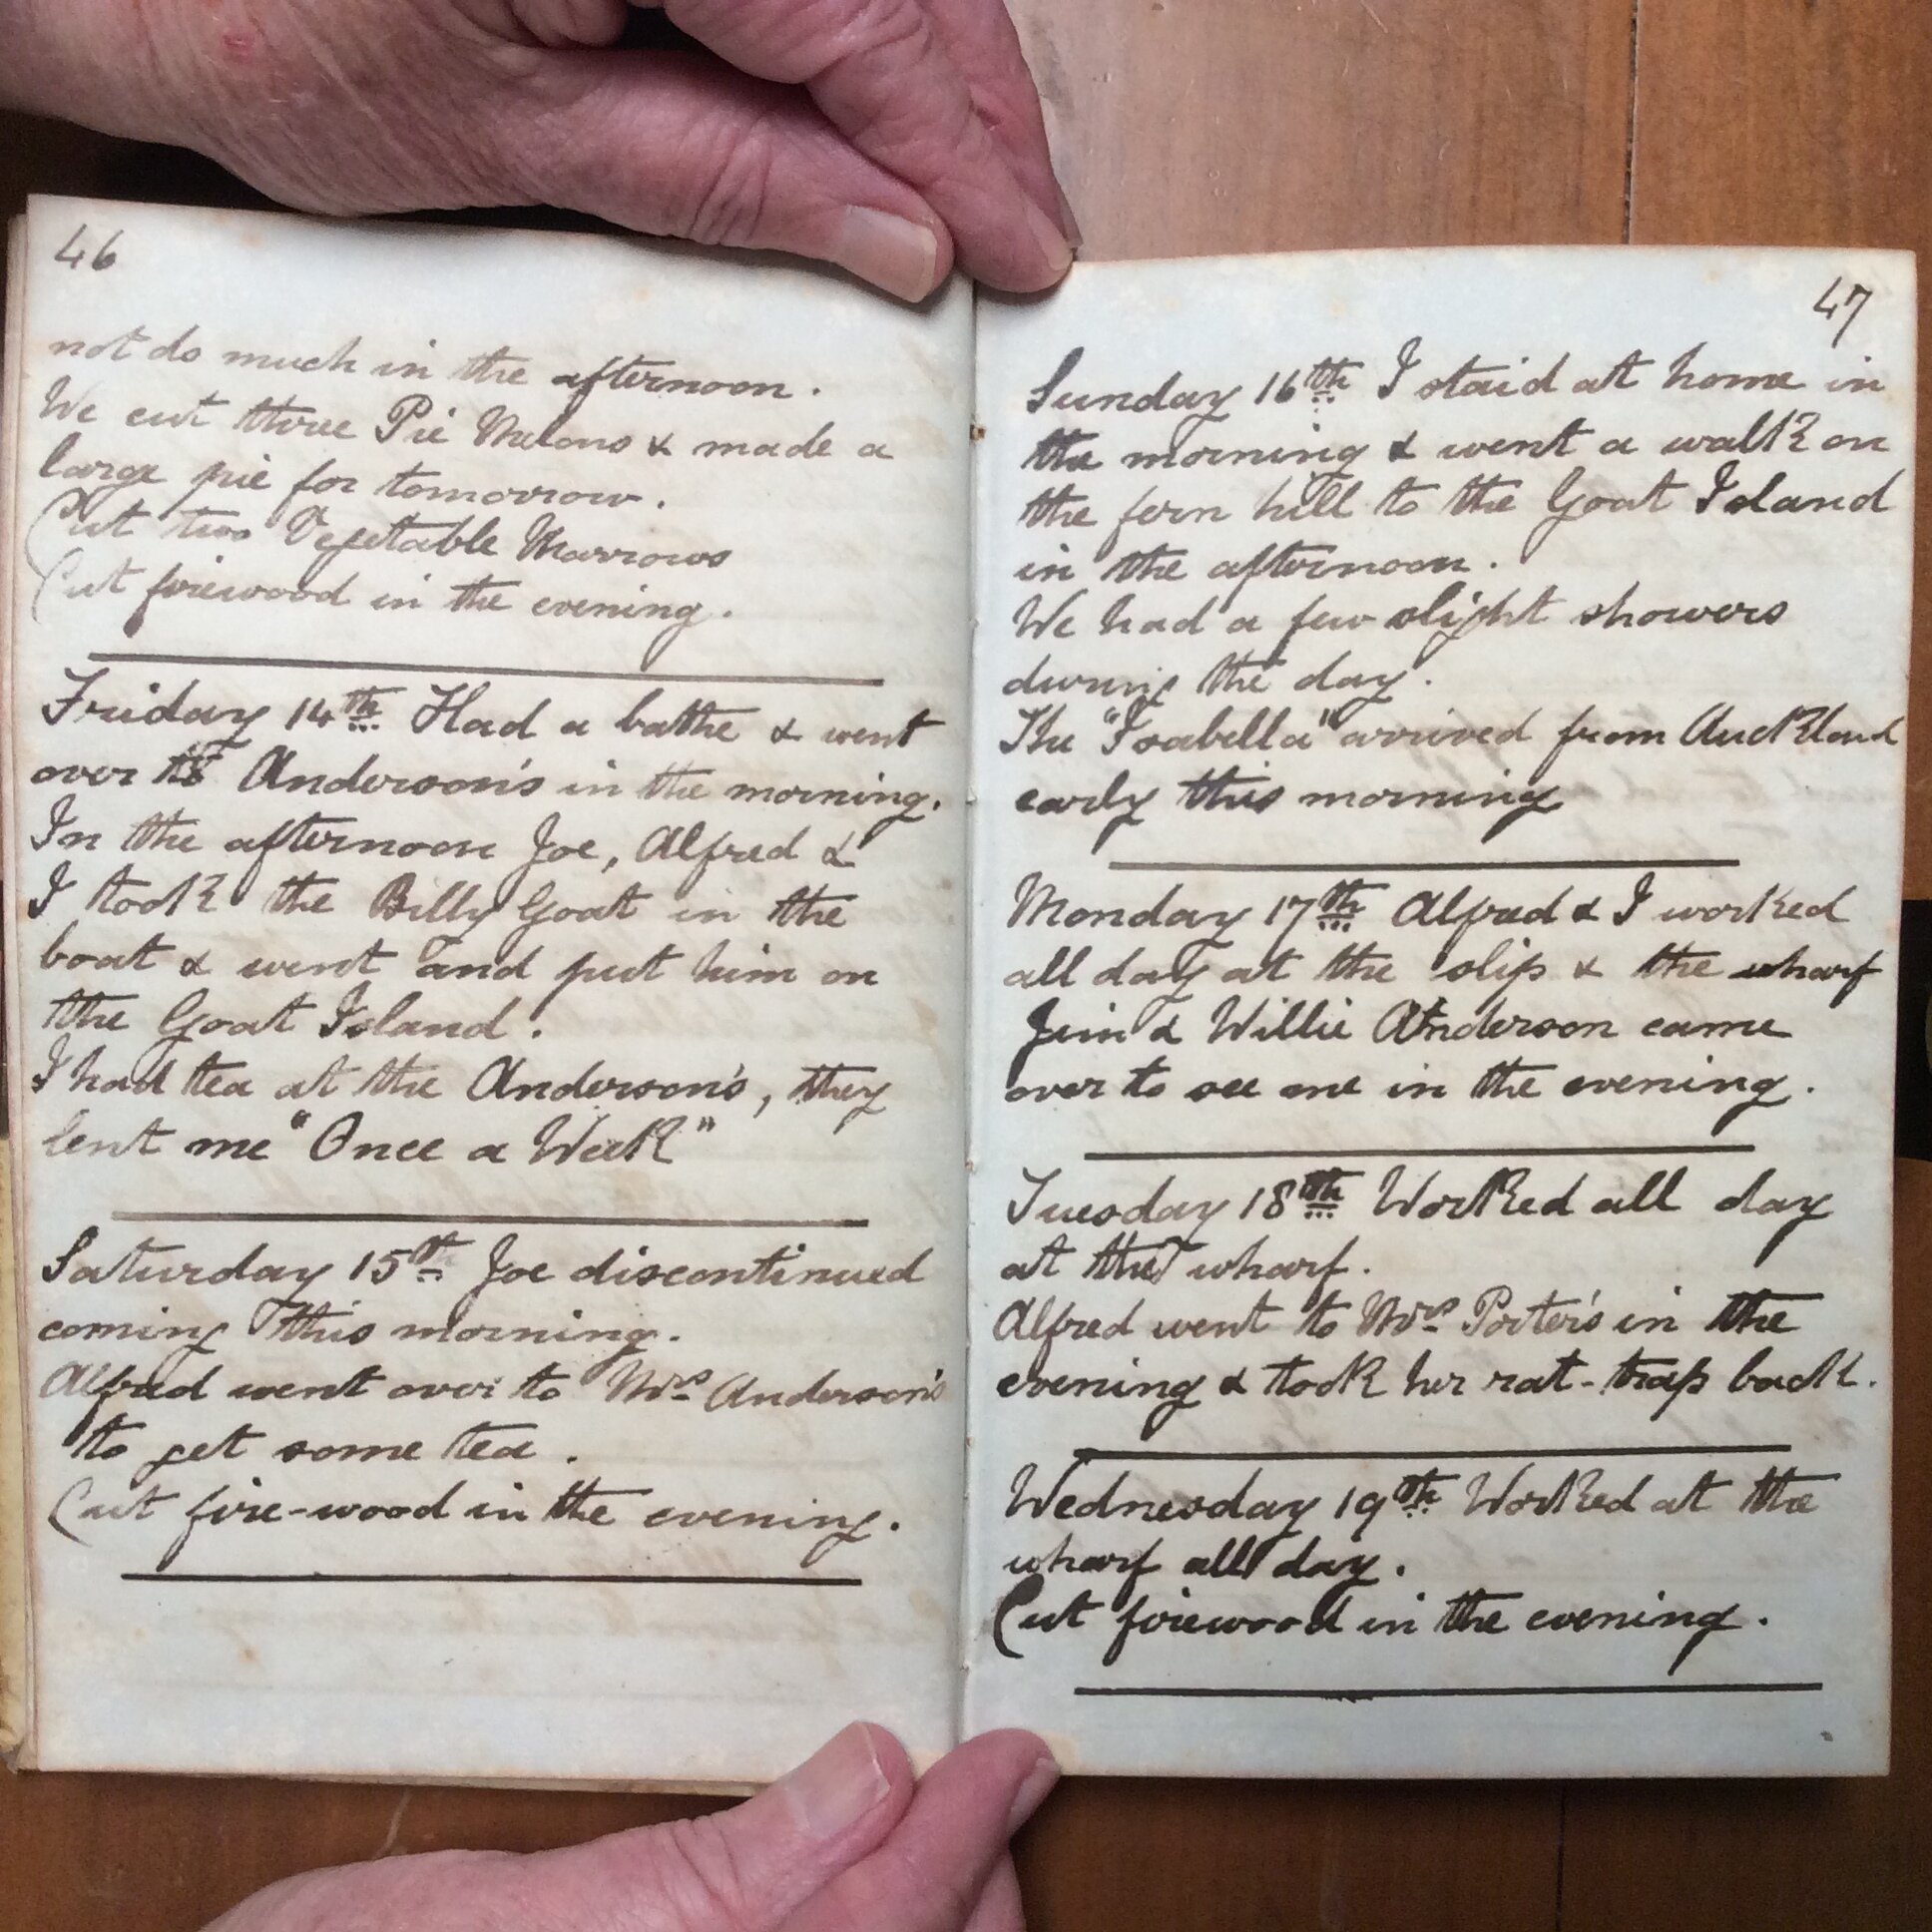 46
not do much in the afternoon.
We cut three Pie Melons & made a
large pie for tomorrow.
Cut two Vegetable Marrows
Cut firewood in the evening.
Friday 14th Had a bathe & went
over to Anderson's in the morning.
In the afternoon Joe, Alfred &
I took the Billy Goat in the
boat & went and put him on
the Goat Island.
I had tea at the Anderson's, they
lent me "Once a Week"
Saturday 15th Joe discontinued
coming this morning.
Alfred went over to Mrs Anderson's
to get some tea.
Cut fire-wood in the evening.
47
Sunday 16th I staid at home in
the morning & went a walk on
the fern hill to the Goat Island
in the afternoon.
We had a few slight showers
during the day.
The "Isabella" arrived from Auckland
early this morning
Monday 17th Alfred & I worked
all day at the slip & the wharf
Jim & Willie Anderson came
over to see me in the evening.
Tuesday 18th Worked all day
at the wharf.
Alfred went to Mrs Porter's in the
evening & took her rat-trap back.
Wednesday 19th Worked at the
wharf all day.
Cut firewood in the evening.